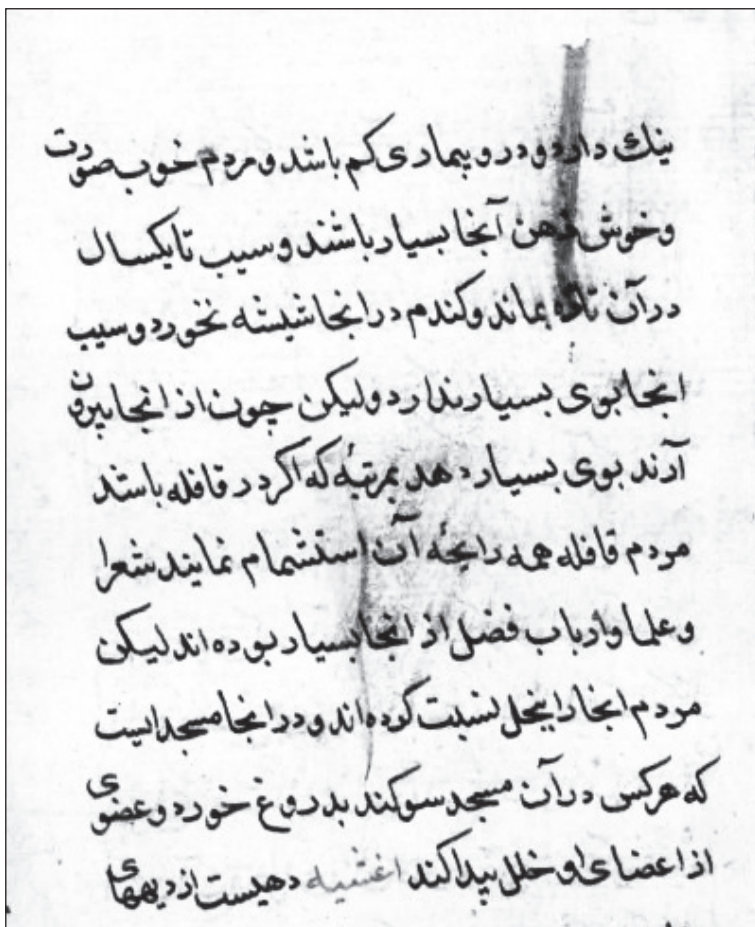 نیك دارد و در و بیماری کم باشد و مردم خوب صورت
و خوش ذهن آنجا بسیار باشند و سیب تا یکسال
در آن تازه بماند و کندم در انجا شیشه نخورد و سیب
انجا بوی بسیار ندارد و لیکن چون از انجا بیرون
آرند بوی بسیار دهد بمرتبهٔ که اکر در قافله باشد
مردم قافله همه رایحهٔ آن استشمام نمایند شعرا
و علما و ارباب فضل از انجا بسیار بوده اند لیکن
مردم انجا را ببخل نسبت کرده اند و در انجا مسجدایست
که هر کس در آن مسجد سوکند بدروغ خورد و عضوی
از اعضای او خلل پیدا کند اغشیه دهیست از دیههای